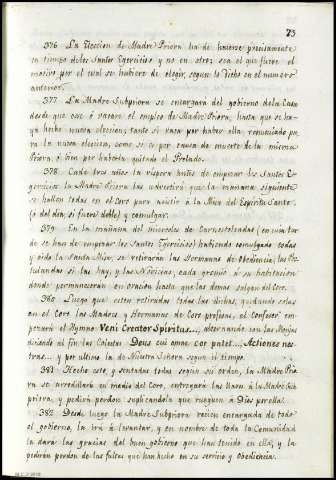 73
376 La Eleccion de Madre Priora ha de hacerse precisamente
en tiempo de los Santos Egercicios y no en otro; sea el que fuere el
motivo por el cual se hubiere de elegir, segun lo dicho en el numero
anterior.
377 La Madre Subpriora se encargará del gobierno de la Casa
desde que cae ó vacare el empleo de Madre Priora, hasta que se ha-
ya hecho nueva eleccion; tanto si vaca por haber ella renunciado pa-
ra la nueva eleccion, como se es por causa de muerte de la misma
Priora, ó bien por haberla quitado el Prelado.
378 Cada tres años la vispera antes de empezar los Santos E-
gercicios la Madre Priora las advertirá que la mañana siguiente
se hallen todas en el Coro para asistir á la Misa del Espiritu Santo.
(ó del dia, si fuere doble) y comulgar.
379 En la mañana del miercoles de Carnestolendas (en cuya tar-
de se han de empezar los Santos Egercicios) habiendo comulgado todas
y oido la Santa Misa, se retirarán las Hermanas de Obediencia, las Pos-
tulandas si las hay, y las Novicias, cada gremio á su habitacion
donde permanecerán en oracion hasta que las demas salgan del Coro.
380 Luego que esten retiradas todas las dichas, quedando solas
en el Coro las Madres y Hermanas de Coro profesas, el Confesor em-
pezará el Hymno: Veni Creator Spiritus..., alternando con las Monjas
diciendo al fin las Colectas Deus cui omne cor patet... Actiones nos-
tras... y por ultimo la de Nuestra Señora segun el tiempo.
381 Hecho esto, y sentadas todas segun su orden, la Madre Prio-
ra se arrodillará en medio del Coro, entregará las llaves á la Madre Sub-
priora, y pedirá perdon suplicandola que rueguen á Dios por ella.
382 Desde luego la Madre Subpriora recien encargada de todo
el gobierno, la irá á levantar, y en nombre de toda la Comunidad
la dará las gracias del buen gobierno que han tenido en ella, y la
pedirán perdon de las faltas que han hecho en su servicio y obediencia.